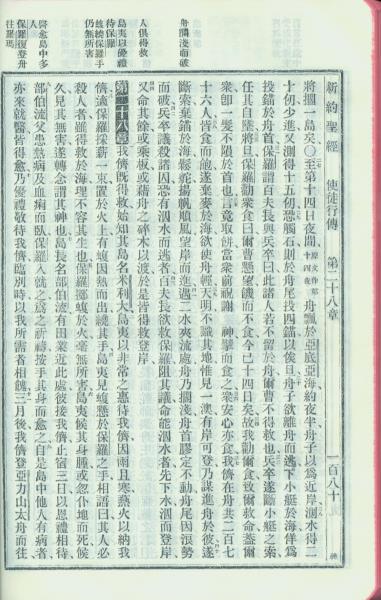 新約聖經 使徒行傳 第二十八章 一百八十
將擱一島矣〇至第十四日夜間原文作第十四夜舟飄於亞底亞海約夜半舟子以爲近岸測水得二
十仞少進又測得十五仞恐觸石則於舟尾投四錨以俟旦舟子欲離舟而逃下小艇於海佯爲
投錨於舟首保羅謂百夫長與兵卒曰此諸人若不留於舟爾曹不得救也兵卒遂斷小艇之索
任其自墜將旦保羅勸衆食曰爾曹懸望饑而不食今已十四日矣故我勸爾食救爾命蓋爾
衆卽一髮不隕於首也言竟取餅當衆前祝謝 神擘而食之衆安心亦食我儕在舟共二百七
十六人皆食而飽遂棄麥於海欲使舟輕天明不識其地惟見一澳有岸可登乃謀進舟於彼遂
斷索棄錨於海鬆舵揚帆順風望岸而進遇二水夾流處舟乃擱淺舟首膠定不動舟尾因浪勢
舟擱淺而破
而破兵卒議殺諸囚恐有泅水而逃者百夫長欲救保羅阻其議命能泅水者先下水泅而登岸
又命其餘或乘板或藉舟之碎木以渡於是皆得救登岸
人俱得救
第二十八章 我儕既得救始知其島名米利大島夷以非常之惠待我儕因雨且寒爇火以納我
島夷以優禮
待保羅
儕適保羅採薪一束置於火上有蝮因熱而出纏其手島夷見蝮懸於保羅之手相語曰其人必
蝮纏保羅手
仍無所害
殺人者雖得救於海理不容其生也保羅擲蝮於火毫無所害島夷候其身腫或忽仆地而死候
久見其無害遂轉念謂其神也島長名部伯流有田業近此處彼接我儕止宿三日以恩禮相待
部伯流父患熱病及血痢而臥保羅入就之爲之祈禱按手其身而愈之自是島中他人有病者
醫愈島中多病
保羅復登舟
往羅瑪
亦來就醫皆得愈乃優禮敬待我儕臨別時以我所需者相餽三月後我儕登亞力山太舟而往